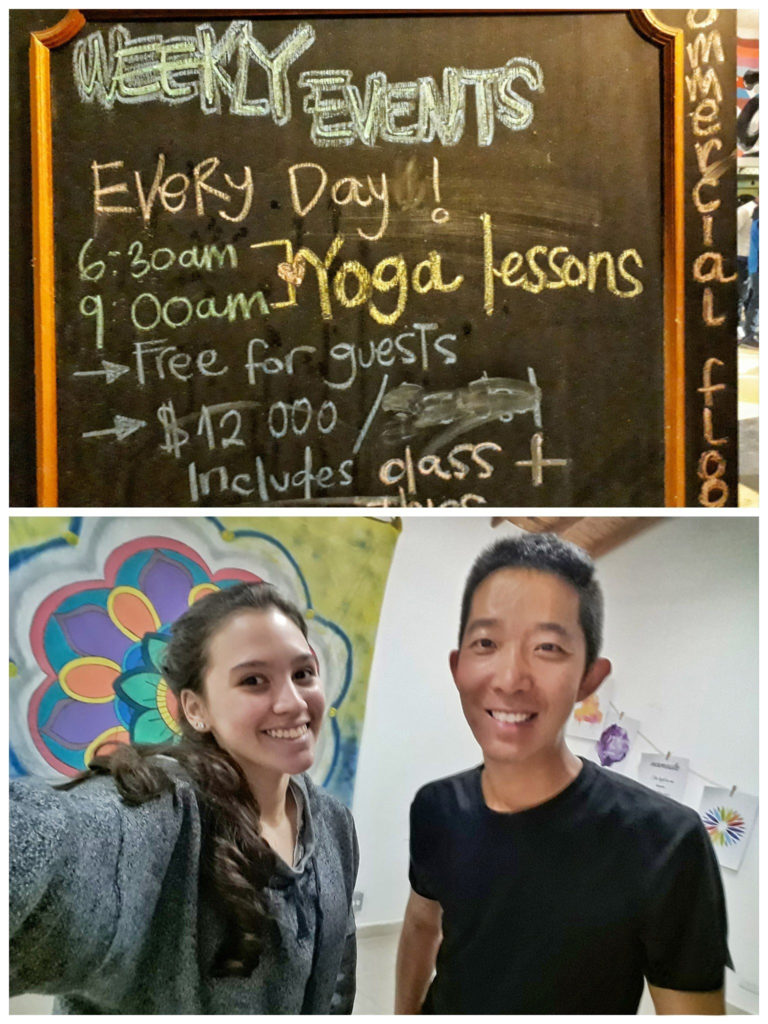 WEEKLY
EVENTS
EVERY DAY !
6:30am
9:00am
Yoga lessons
→ Free for guests
→ $12 000 /
Includes class +
ommercial floo
namaste